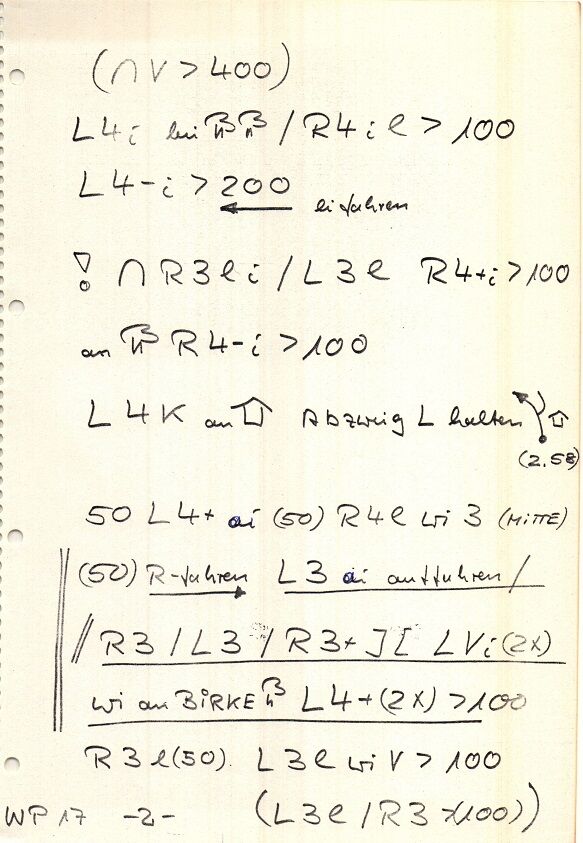 (∩ V > 400)
L4i bei / R4i l > 100
L4-i > 200 einfahren
! ∩ R3 l i / L3 l R4+i > 100
an R4-i > 100
L4K an Abzweig L halten
(2.58)
50 L4+ ai (50) R4l wi 3 (MITTE)
(50) R-fahren L3 ai auffahren /
// R3 / L3 / R3+ ][ LVi (2x)
wi an BIRKE L4+ (2x) > 100
R3 l (50). L3 l wi V > 100
WP 17 -2- (L3 l / R3 > (100))